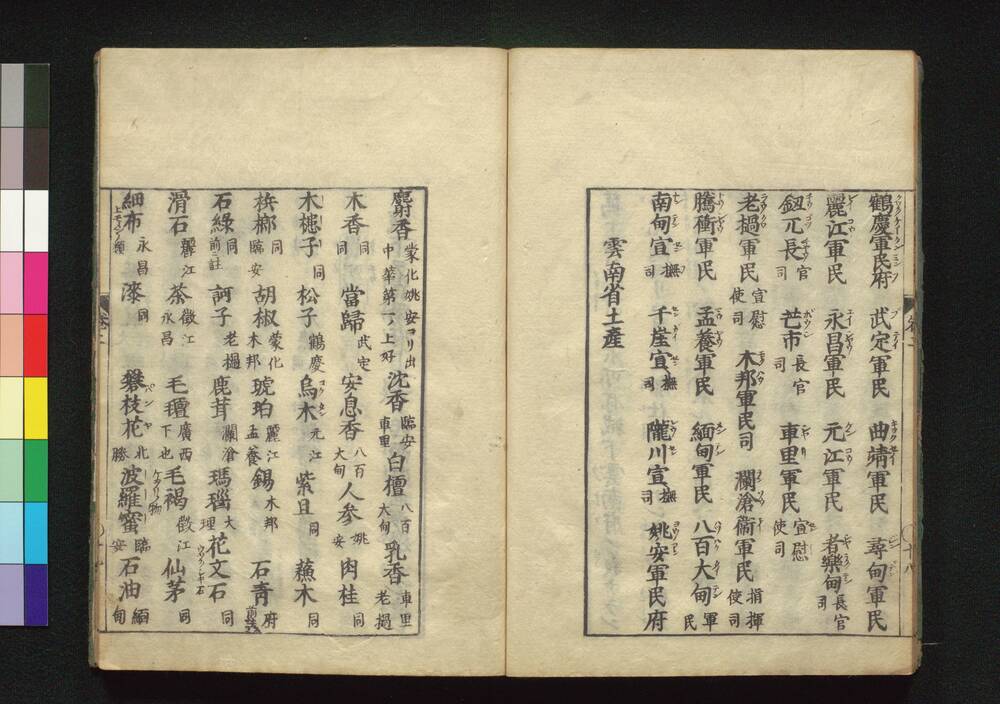 鶴慶軍民府 武定軍民 曲靖軍民 尋甸軍民
麗江軍民 永昌軍民 元江軍民 者樂甸長官司
鈕兀長官司 芒市長官司 車里軍民宣慰使司
老撾軍民宣慰使司 木邦軍民司 瀾滄衞軍民指揮使司
騰衝軍民 孟養軍民 緬甸軍民 八百大甸軍民
南甸宣撫司 千崖宣撫司 隴川宣撫司 姚安軍民府
雲南省土產
麝香蒙化姚安ヨリ出中華第一ノ上好 沈香臨安車里 白檀八百大甸 乳香車里老撾
木香同同 當歸武定 安息香八百大甸 人参姚安 肉桂同
木槵子同 松子鶴慶 烏木元江 紫且同 蘓木同
梹榔同臨安 胡椒蒙化木邦 琥珀麗江孟養 錫木邦 石青府前ニ注
石綠同前ニ註 訶子老撾 鹿茸瀾滄 瑪瑙大理 花文石同
滑石麗江 茶徵江永昌 毛氊廣西下也 毛褐徵江 仙茅同
細布永昌 漆同 礬枝花北勝 波羅蜜臨安 石油緬甸